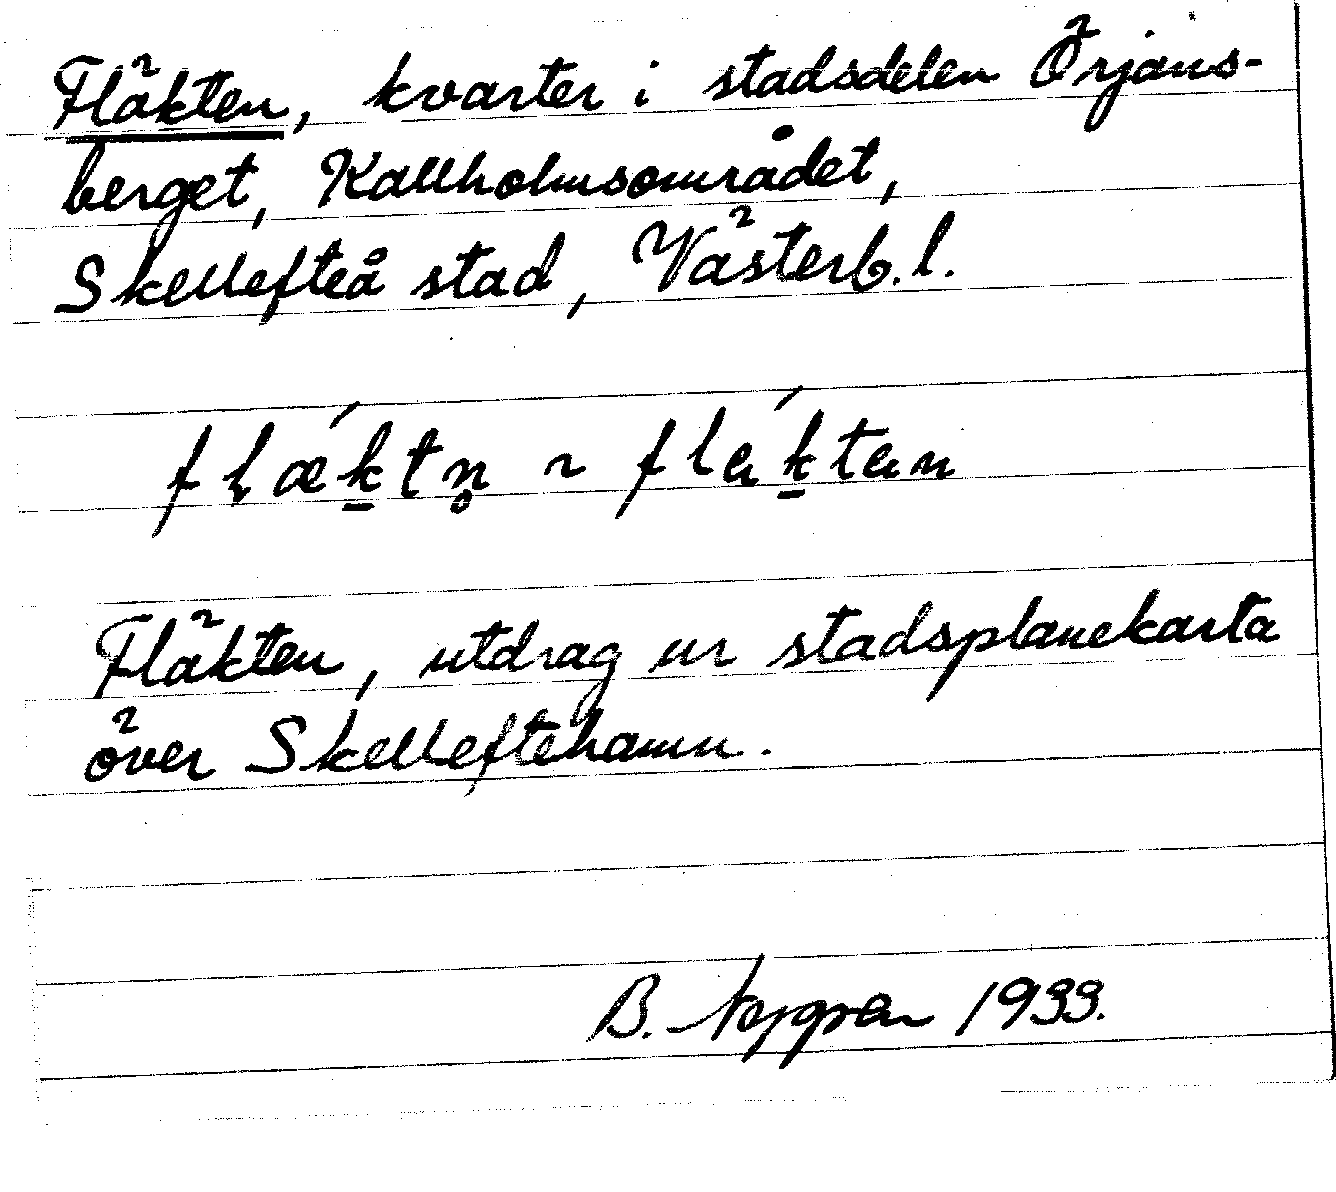 Fläkten, kvarter i stadsdelen Örjans-
berget, Kallholmsområdet,
Skellefteå stad, Västerb. l.
Fläkten, utdrag ur stadsplanekarta
över Skelleftehamn.
B. Nygren 1933.